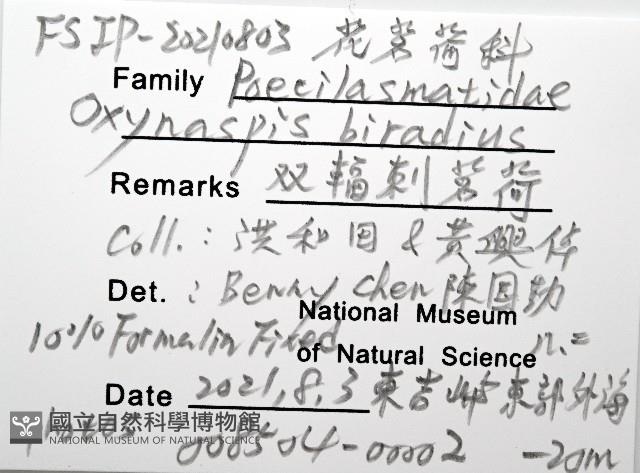 FSIP-20210803 花茗荷科
Family Poecilasmatidae
Oxynaspis biradius
Remarks 双輻刺茗荷
Coll.: 洪和田 & 黃興倬
Det.: Benny Chen 陳国勤
National Museum
10% Formalin Fixed n.=
of Natural Science
Date 2021,8,3 東吉嶼東部外海
國立自然科學博物館
NATIONAL MUSEUM OF NATURAL SCIENCE
008504-00002 -20m